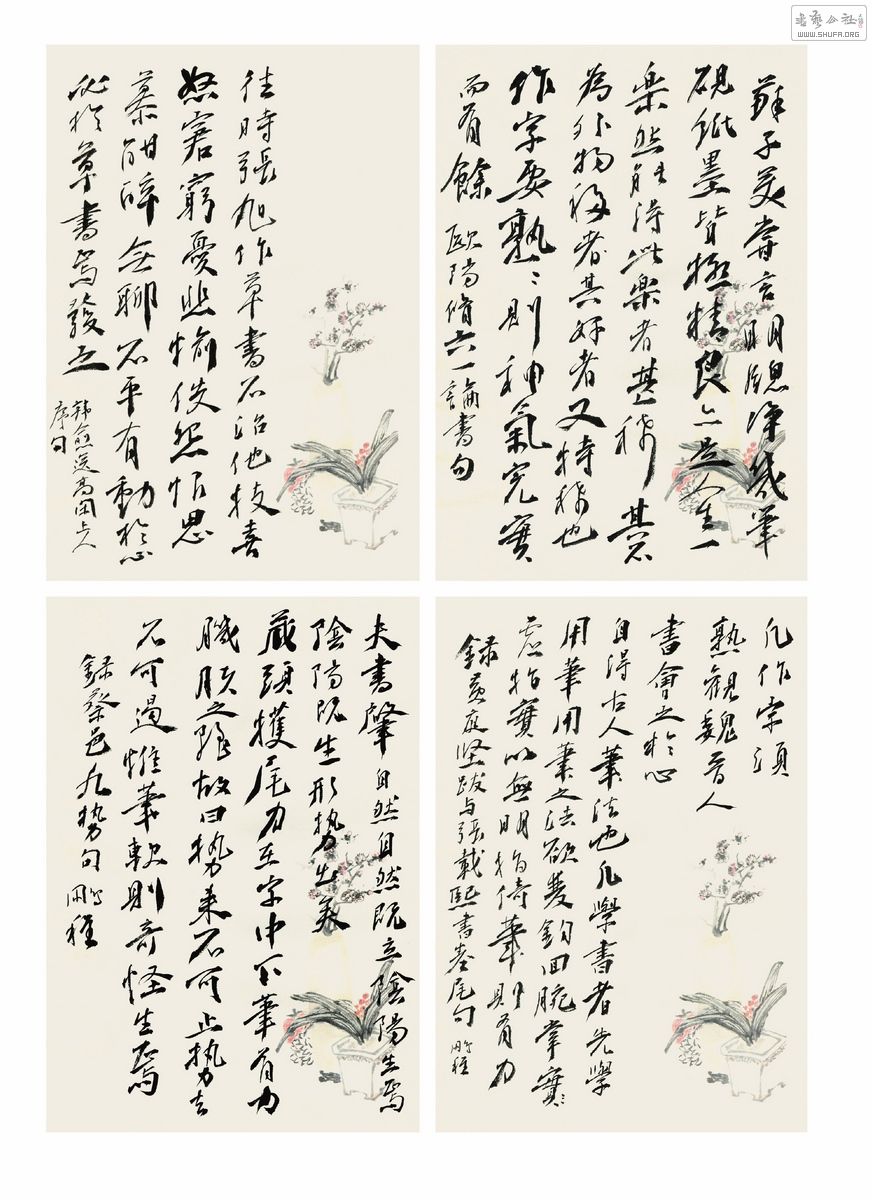 書藝公社
WWW.SHUFA.ORG
蘇子美嘗言明牕淨几筆
硯紙墨皆極精良亦是人生一
樂然能得此樂者甚稀其不
為外物移者其好者又特稀也
作字要熟〻則神氣完實
而有餘 歐陽脩六一論書句
往時張旭作草書不治他技喜
怒窘窮憂悲愉佚怨恨思
慕酣醉無聊不平有動於心
必於草書焉發之 韩愈送高闲上人
序句
凡作字須
熟觀魏晉人
書會之於心
自得古人筆法也凡學書者先學
用筆用筆之法欲雙鉤回腕掌實〻
虛指實以無明指倚筆則有力
錄黃庭堅跋与張載熙書卷尾句
夫書肇自然自然既立陰陽生焉
陰陽既生形勢出矣
藏頭護尾力在字中下筆有力
肌膚之麗故曰势來不可止势去
不可遏惟筆軟則奇怪生焉
録蔡邕九势句